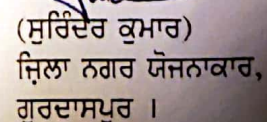 (ਸੁਰਿੰਦਰ ਕੁਮਾਰ)
ਜ਼ਿਲਾ ਨਗਰ ਯੋਜਨਾਕਾਰ,
ਗੁਰਦਾਸਪੁਰ ।